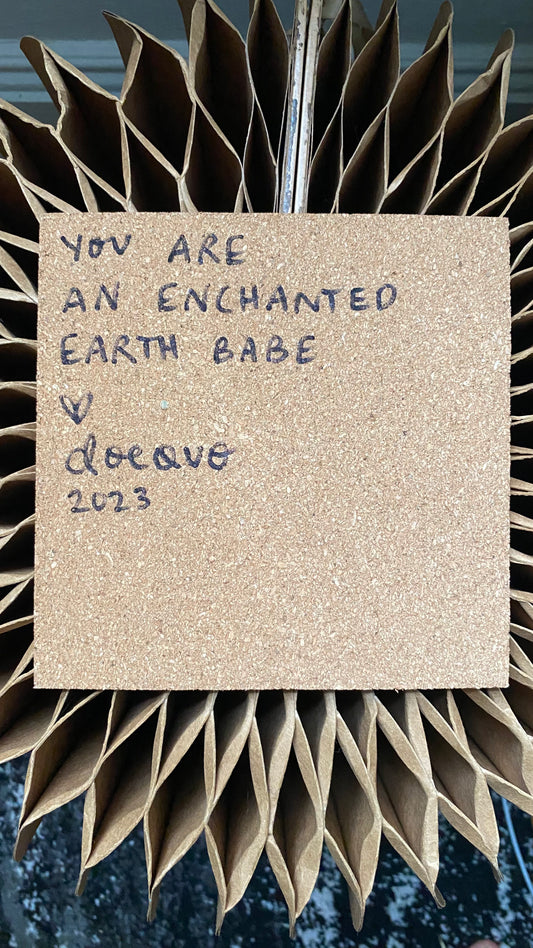 YOU ARE
AN ENCHANTED
EARTH BABE
♡
docquo
2023